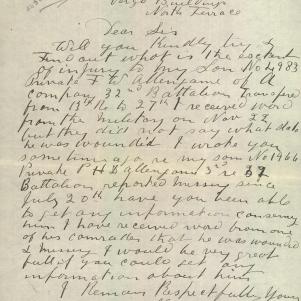 Virgo Buildings
North Terrace
Dear Sir
Will you Kindly try &
Find out what is the exstent
of injury to my Son No 4983
Private F
Company 32nd Battalion Transfered
from 13th to 27th I received word
from the military on Nov 22
but they did not say what date
he was wounded I wrote you
some time ago re my son No 1966
Private P H 32
Battalion reported missing since
July 20th have you been able
to get any information concerning
him I have received word from one
of his comrades that he was wounded
I would be very great
full if you could get any
information about him
I Remain Respectfully Yours